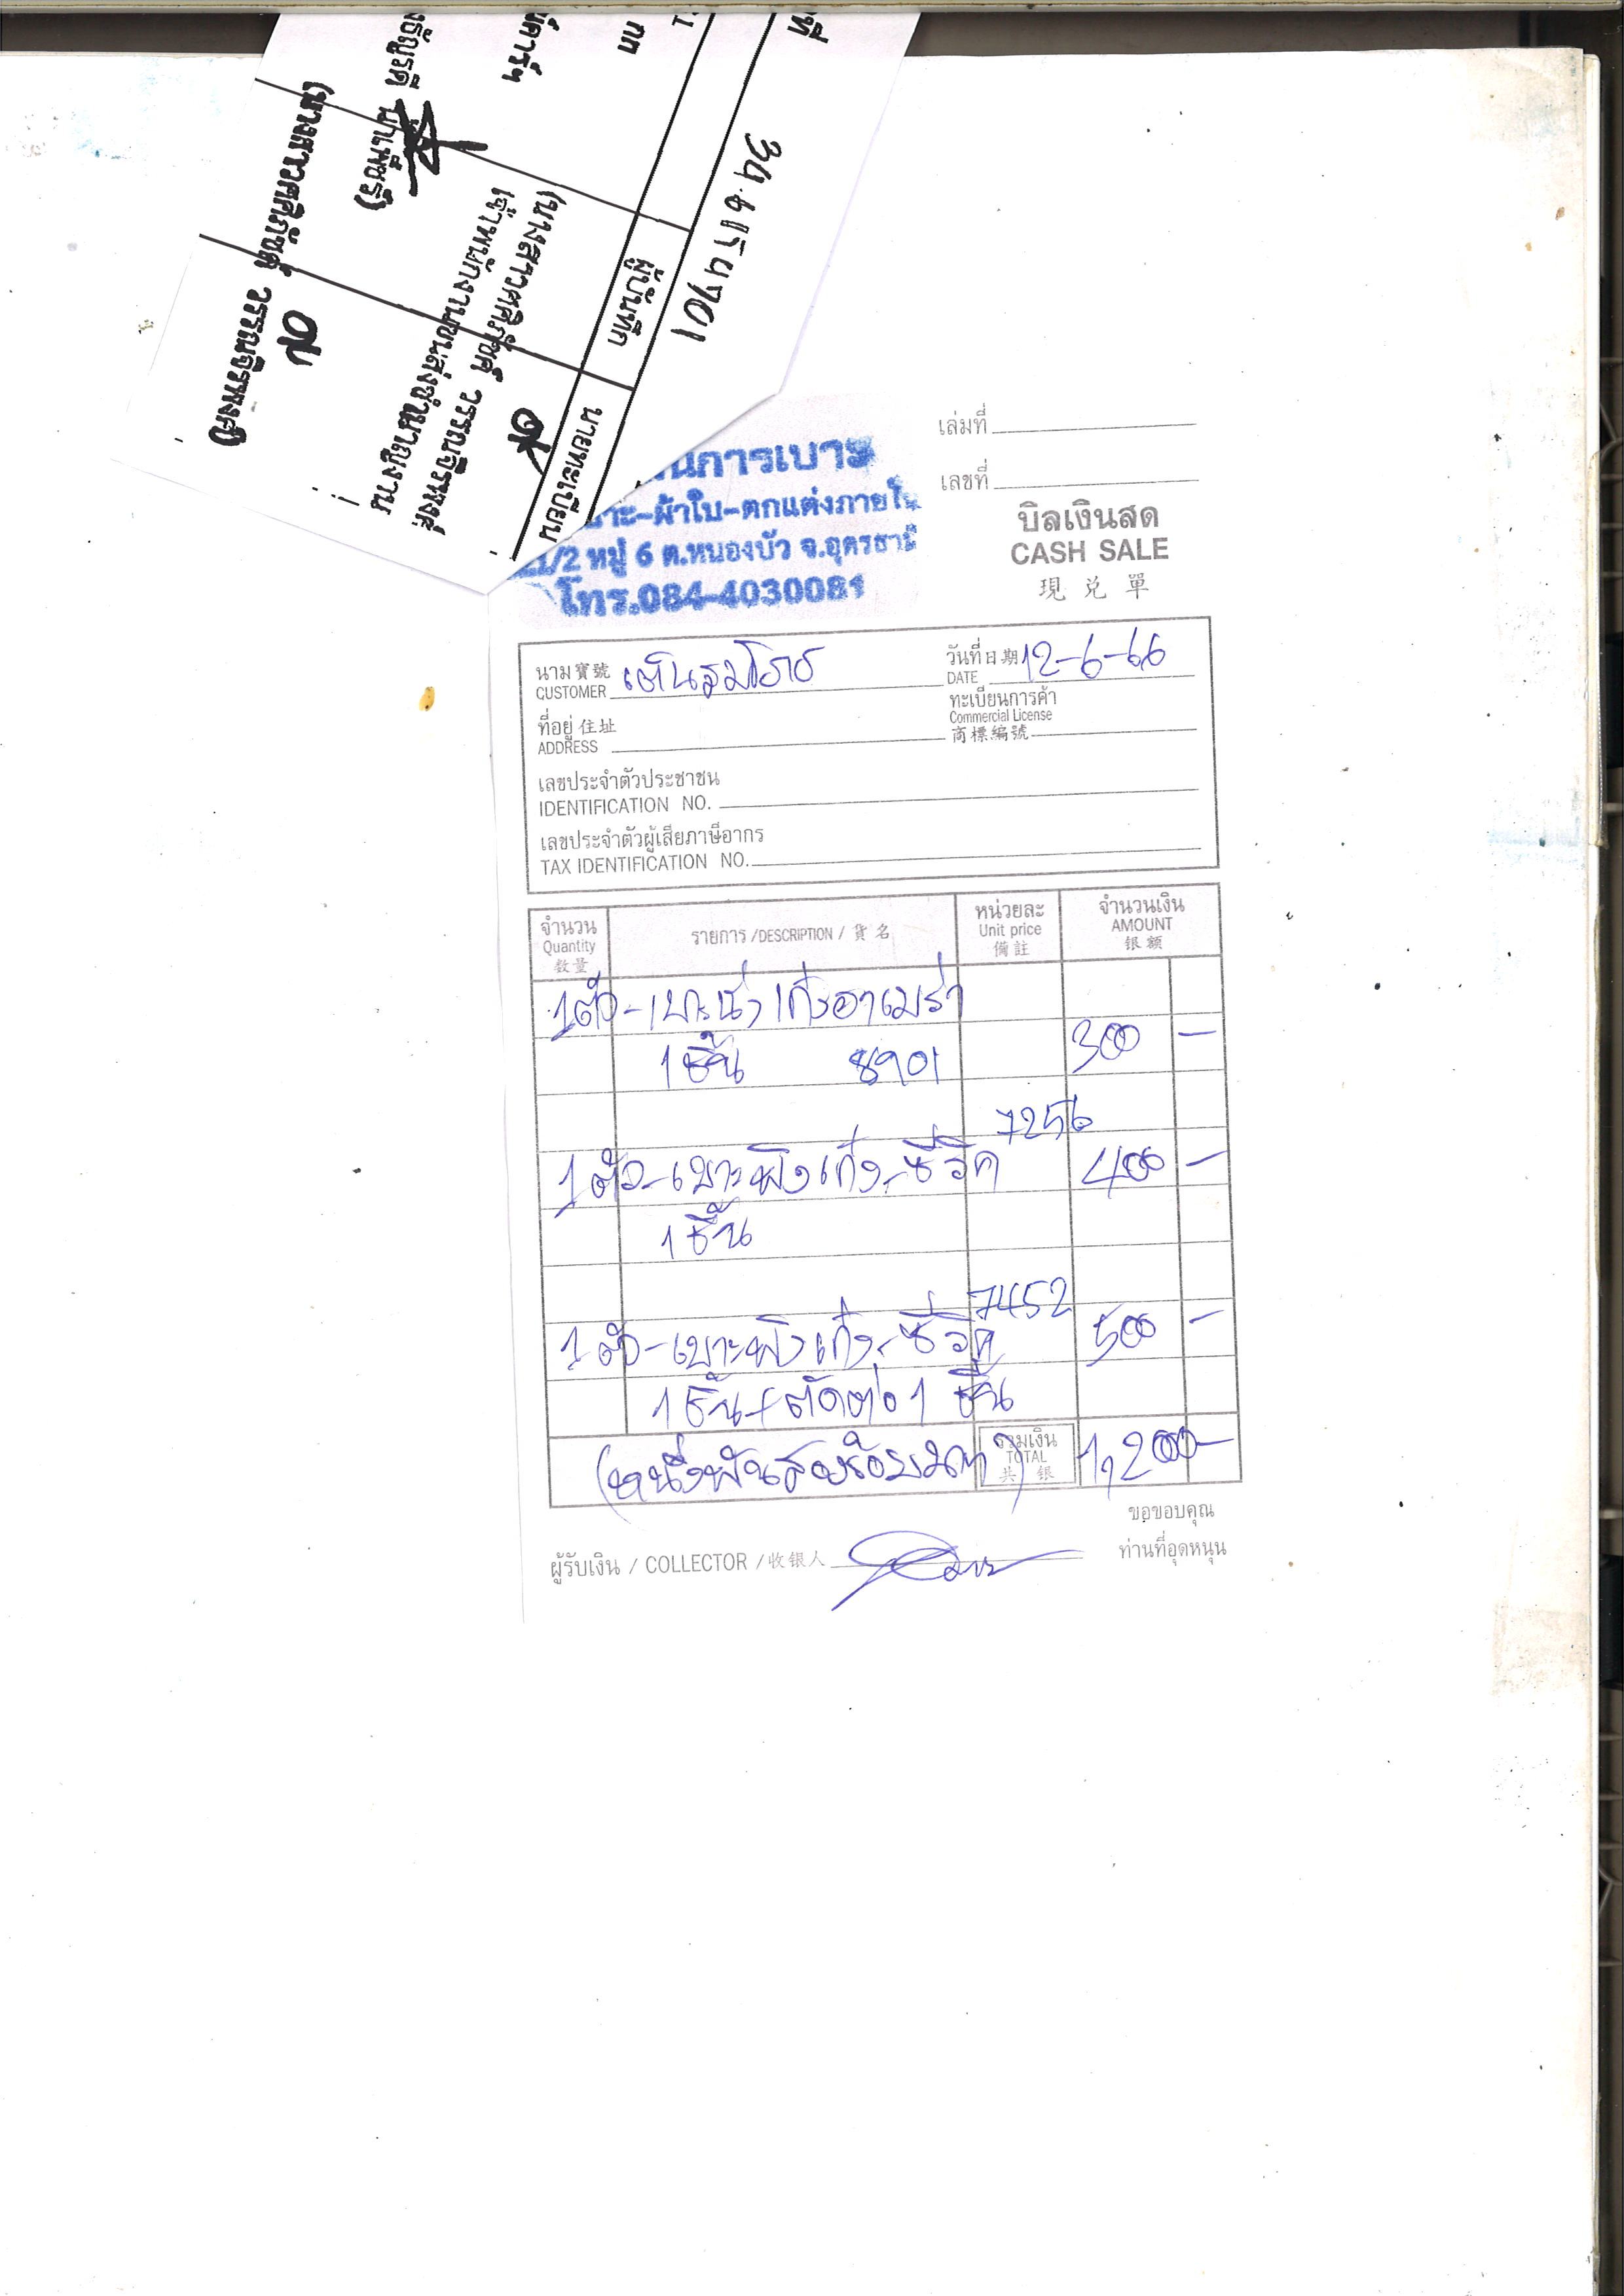 เล่มที่
เลขที่
บิลเงินสด
CASH SALE
現兌單
นการเบาะ
าะ-ผ้าใบ-ตกแต่งภายใน
/2 หมู่ 6 ต.หนองบัว จ.อุดรธานี
โทร.084-4030081
นาม寶號 เต็นรุมโอรอ วันที่日期 12-6-66
CUSTOMER DATE
ทะเบียนการค้า
ที่อยู่住址 Commercial License
ADDRESS 商標編號
เลขประจำตัวประชาชน
IDENTIFICATION NO.
เลขประจำตัวผู้เสียภาษีอากร
TAX IDENTIFICATION NO.
จำนวน รายการ/DESCRIPTION/貨名 หน่วยละ จำนวนเงิน
Quantity Unit price AMOUNT
数量 備註 银额
1ตัว-เบาะ เก๋ง
1ชิ้น 8901 300 -
7256
1ตัว-เบาะพิงเก๋ง-ซีวิค 400 -
1ชิ้น
7452
1ตัว-เบาะพิงเก๋ง-ซีวิค 500 -
1ชิ้น+ตัดต่อ 1 ชิ้น
(หนึ่งพันสองร้อยบาท) รวมเงิน 1,200-
TOTAL
共银
ขอขอบคุณ
ผู้รับเงิน / COLLECTOR / 收银人 ท่านที่อุดหนุน
ผู้บันทึก
นายทะเบียน
เจ้าพนักงานขนส่งชำนาญงาน